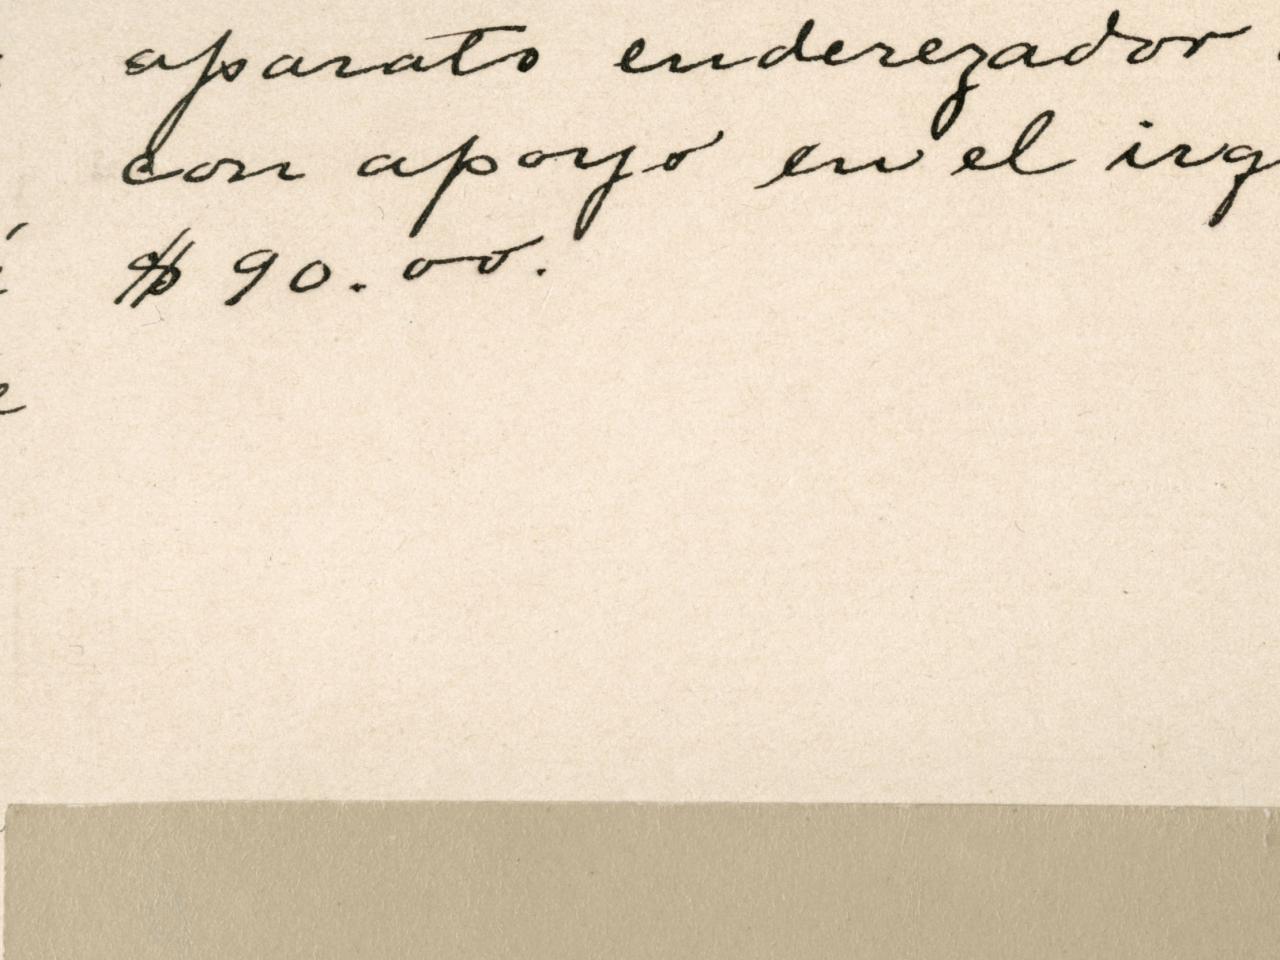 aparato enderezador
con apoyo en el
$ 90.00.